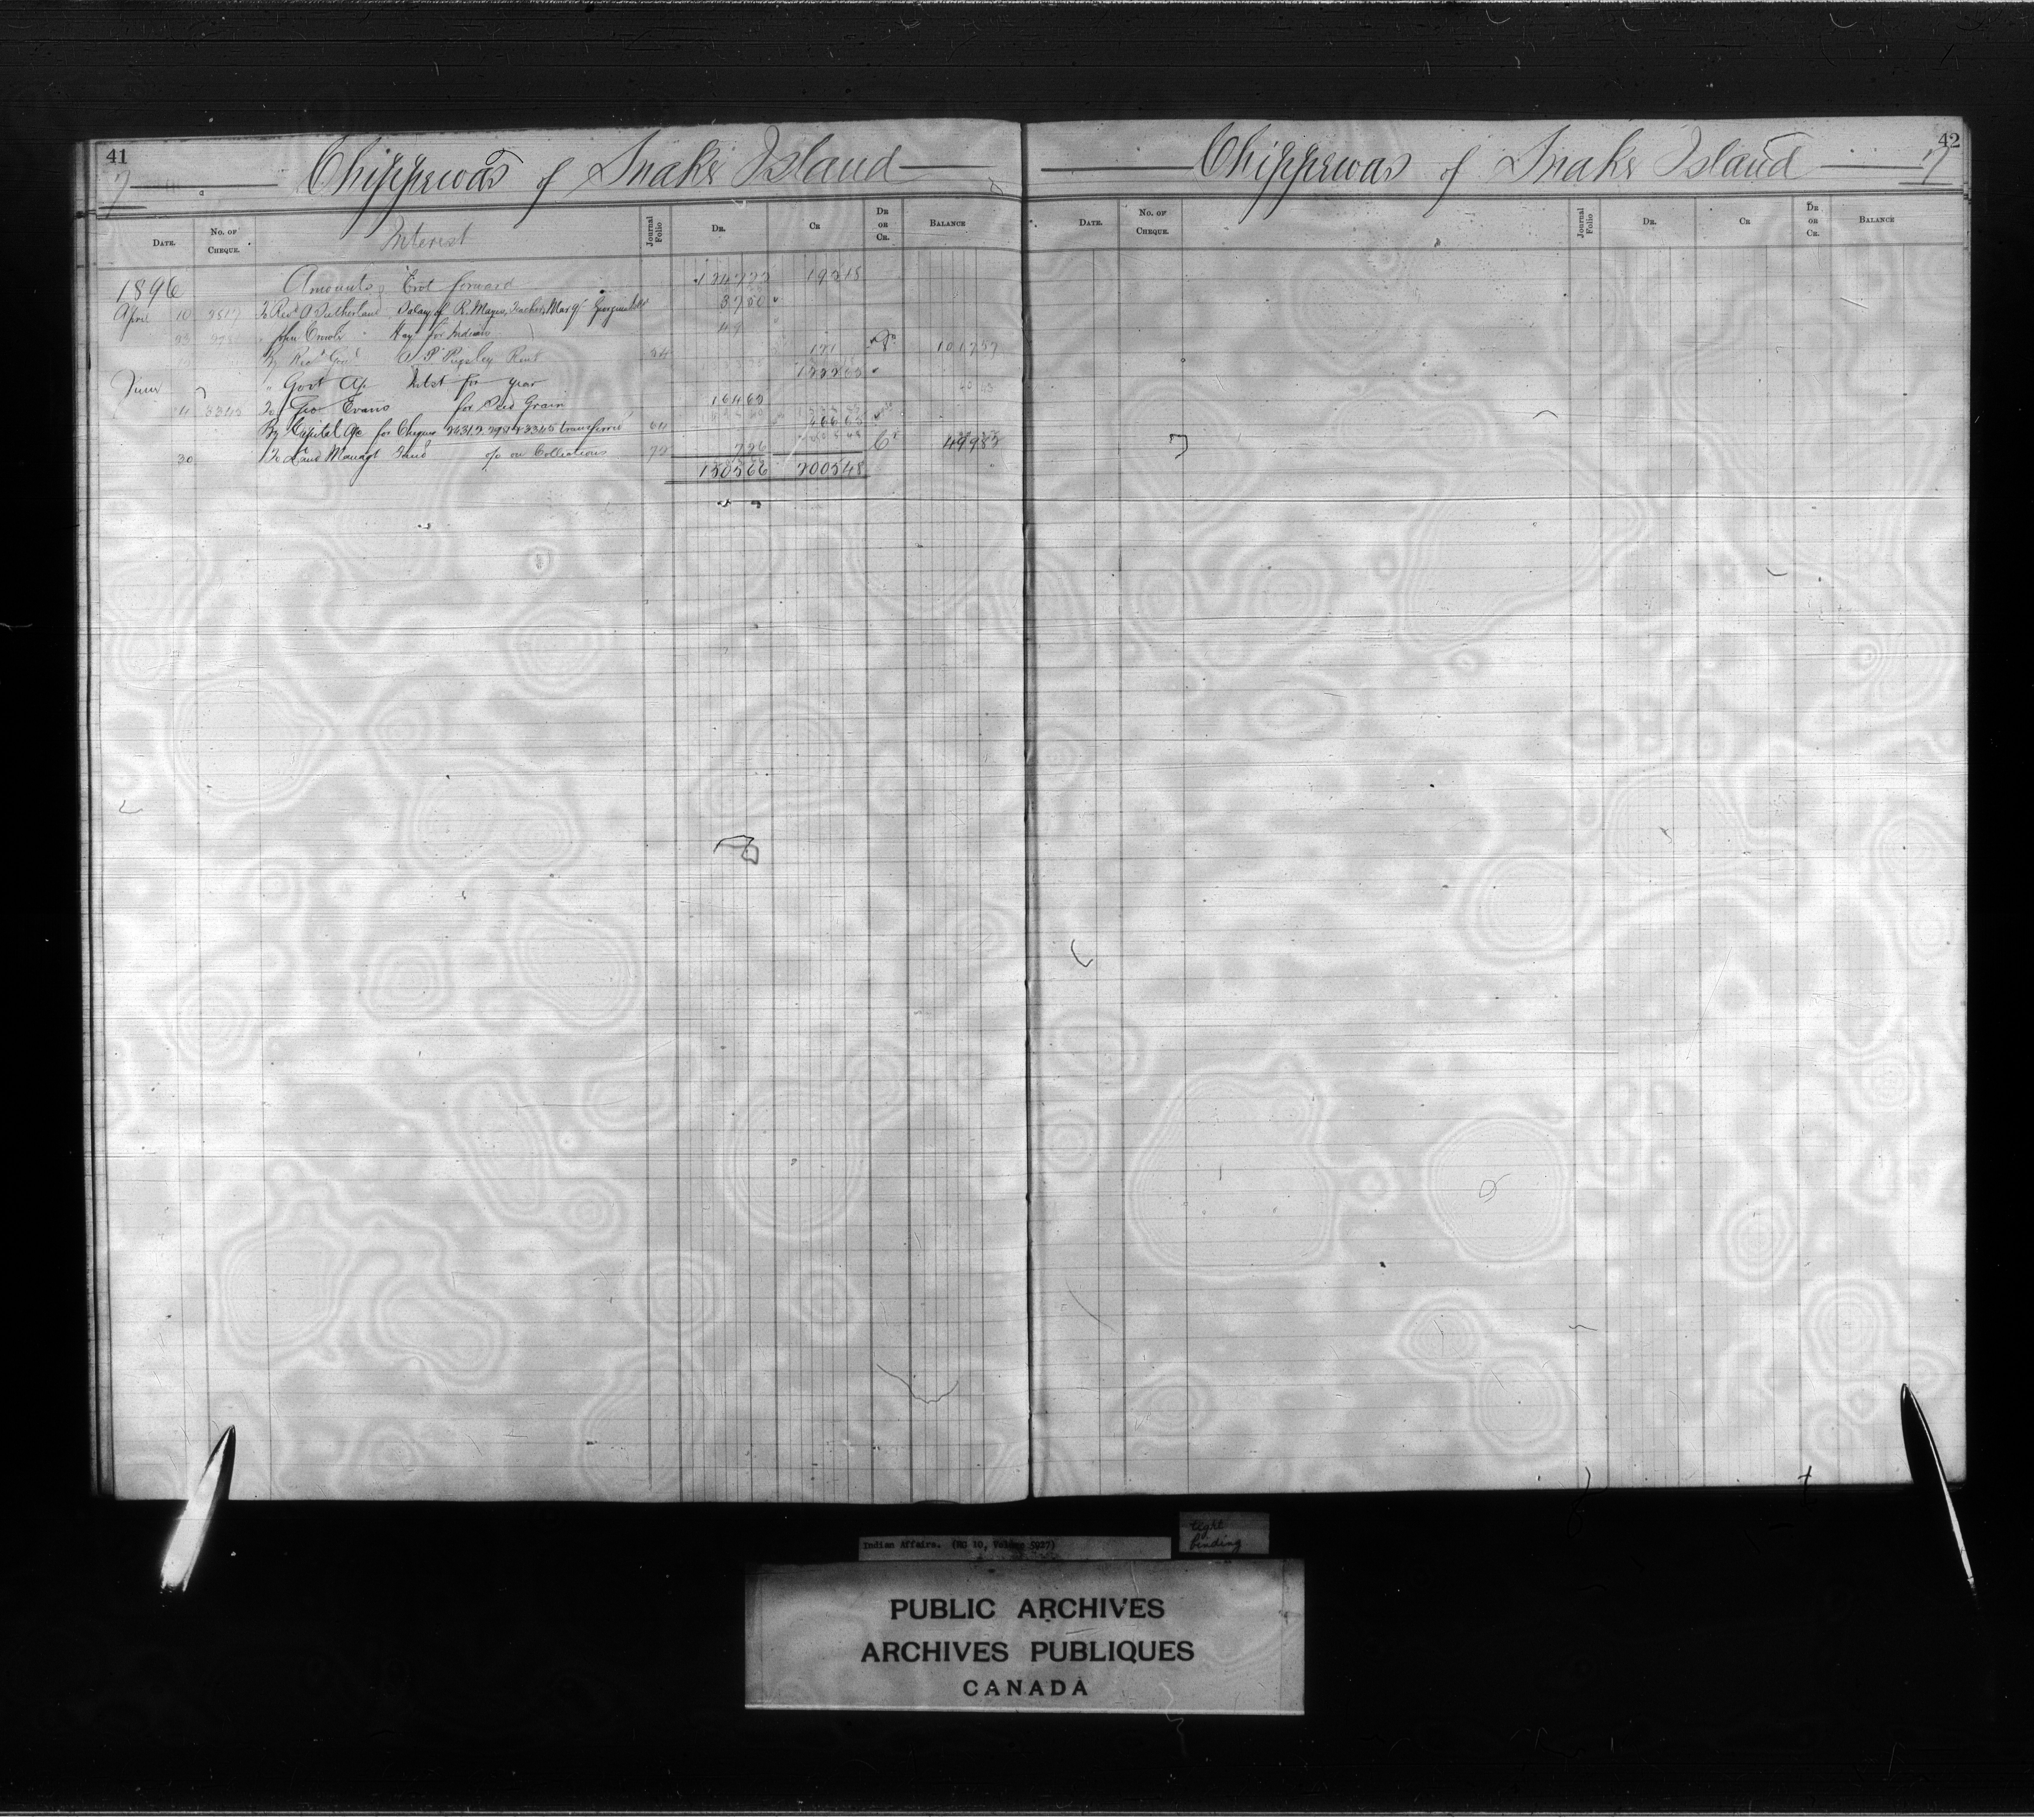 41
7
Chippewas of Snake Island
DATE. No. OF CHEQUE. Interest Journal Folio DR. CR DR OR CR. BALANCE
1896 Amounts Brot forward 124722 19218
April 10 To Revd A Sutherland Salary of R. Mayes, Teacher, Mar qr Georgina Isld 3750
John Hay for Indian 49
By Recr Genl A P Pugsley Rent 34 171 Dr 101757
June " Govt a/c Intst for year
4 3345 To Geo Evans for Seed Grain 16468
By Capital a/c for Cheques transferred 64
30 To Land Managt Fund % on Collections 72 726 Cr 49982
150566 200548
42
7
Chippewas of Snake Island
DATE. No. OF CHEQUE. Journal Folio DR. CR DR OR CR. BALANCE
Indian Affairs. (RG 10, Volume 5927)
tight
binding
PUBLIC ARCHIVES
ARCHIVES PUBLIQUES
CANADA